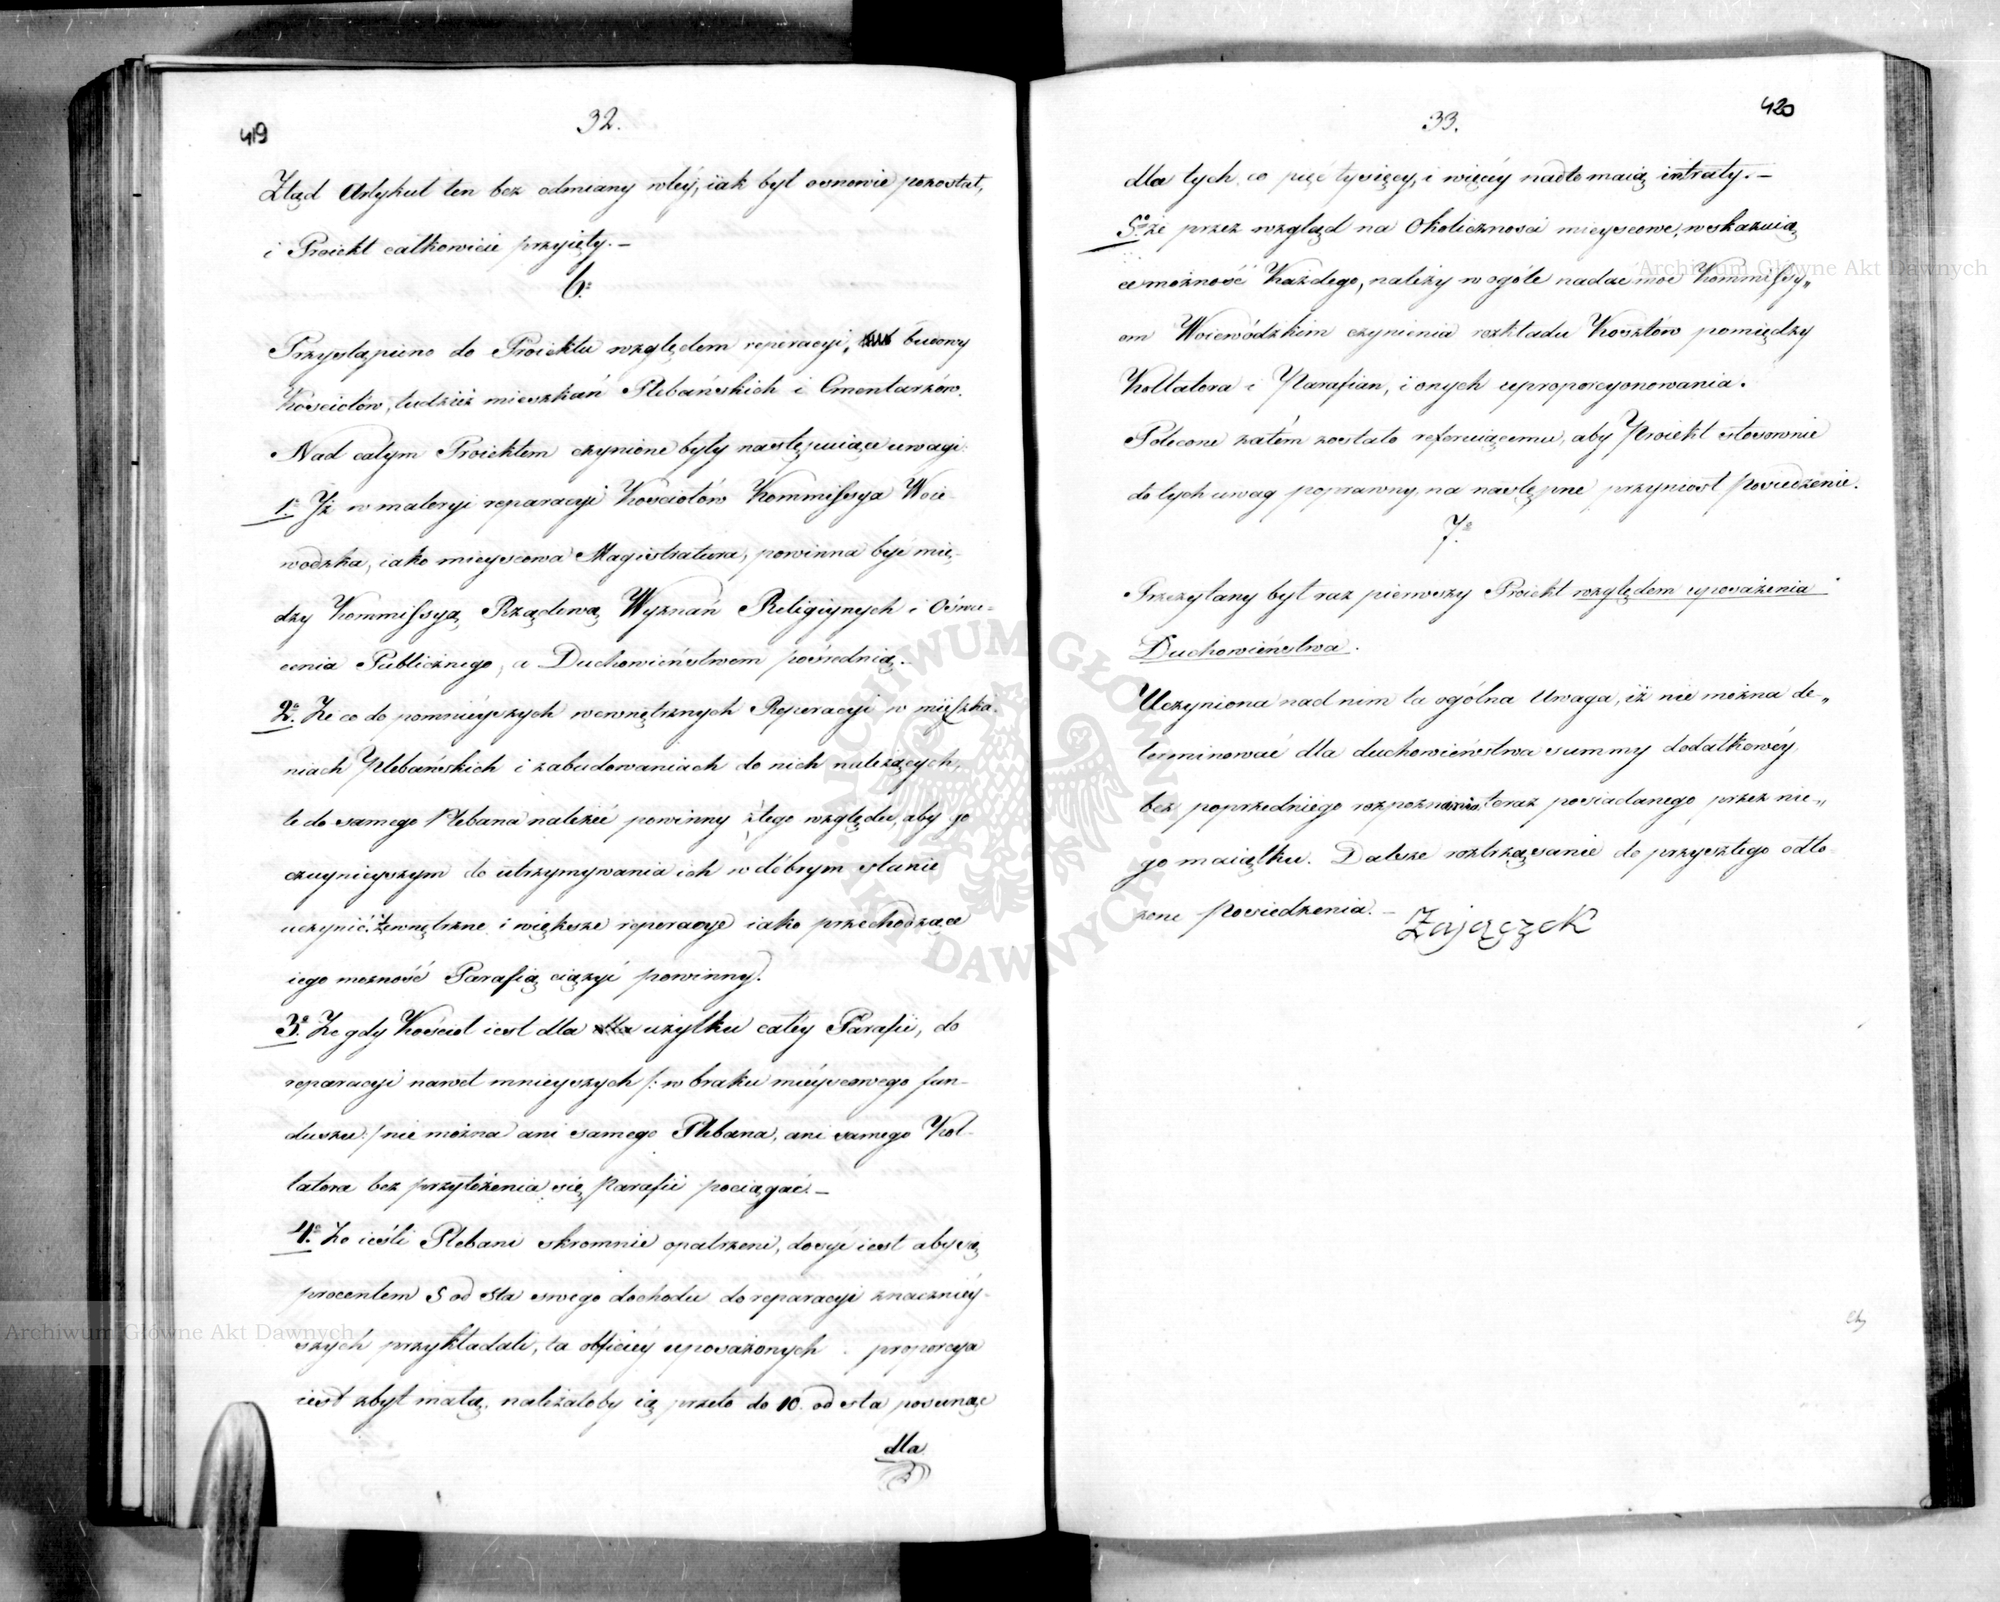 419
32.
Ztąd Artykuł ten bez odmiany w téy, iak był osnowie pozostał,
i Proiekt całkowicie przyięty.—
6º
Przystąpiono do Proiektu względem reperacyi, budowy
Kościołów, tudzież mieszkań Plebańskich i Cmentarzów.
Nad całym Proiektem czynione były następuiące uwagi:
1º Jż w materyi reparacyi Kościołów Kommissya Woie-
wodzka, iako mieyscowa Magistratura, powinna być mię-
dzy Kommissyą Rządową Wyznań Religiynych i Oświe-
cenia Publicznego, a Duchowieństwem pośrednią.—
2º Że co do pomnieyszych wewnętrznych Reperacyi w mięszka-
niach Plebańskich i zabudowaniach do nich należących,
te do samego Plebana należeć powinny z tego względu, aby go
czuynieyszym do utrzymywania ich w dobrym stanie
uczynić. Zewnętrzne i większe reperacye iako przechodzące
iego możność Parafią ciążyć powinny.
3º Że gdy Kościoł iest dla użytku całéy Parafii, do
reparacyi nawet mnieyszych /: w braku mieyscowego fun-
duszu :/ nie można ani samego Plebana, ani samego Kol-
latora bez przyłożenia się Parafii pociągać.—
4º Że ieśli Plebani skromnie opatrzeni, dosyć iest aby się
procentem 5 od sta swego dochodu do reparacyi znaczniéy-
szych przykładali, ta obficiéy uposażonych proporcya
iest zbyt małą. należałoby ią przeto do 10. od sta posunąć
dla
420
33.
dla tych co pięć tysięcy, i więcéy nadto maią intraty.—
5º że przez wzgląd na Okoliczności mieyscowe, wskazuią
ce możność Każdego, należy w ogóle nadać moc Kommissy„
om Woiewódzkim czynienia rozkładu Kosztów pomiędzy
Kollatora i Parafian, i onych uproporcyonowania.
Polecone zatém zostało referuiącemu, aby Proiekt stosownie
do tych uwag poprawny, na następne przyniosł Posiedzenie.
7º
Przezytany był raz pierwszy Proiekt względem uposażenia
Duchowieństwa.
Uczyniona nad nim ta ogólna Uwaga, iż nie można de„
terminować dla duchowieństwa summy dodatkowéy,
bez poprzedniégo rozpoznania teraz posiadanego przez nie„
go maiątku. Dalsze roztrząsanie do przyszłego odło-
żone Posiedzenia.—
Zajączek
Archiwum Główne Akt Dawnych
Archiwum Główne Akt Dawnych
ARCHIWUM GŁÓWNE AKT DAWNYCH